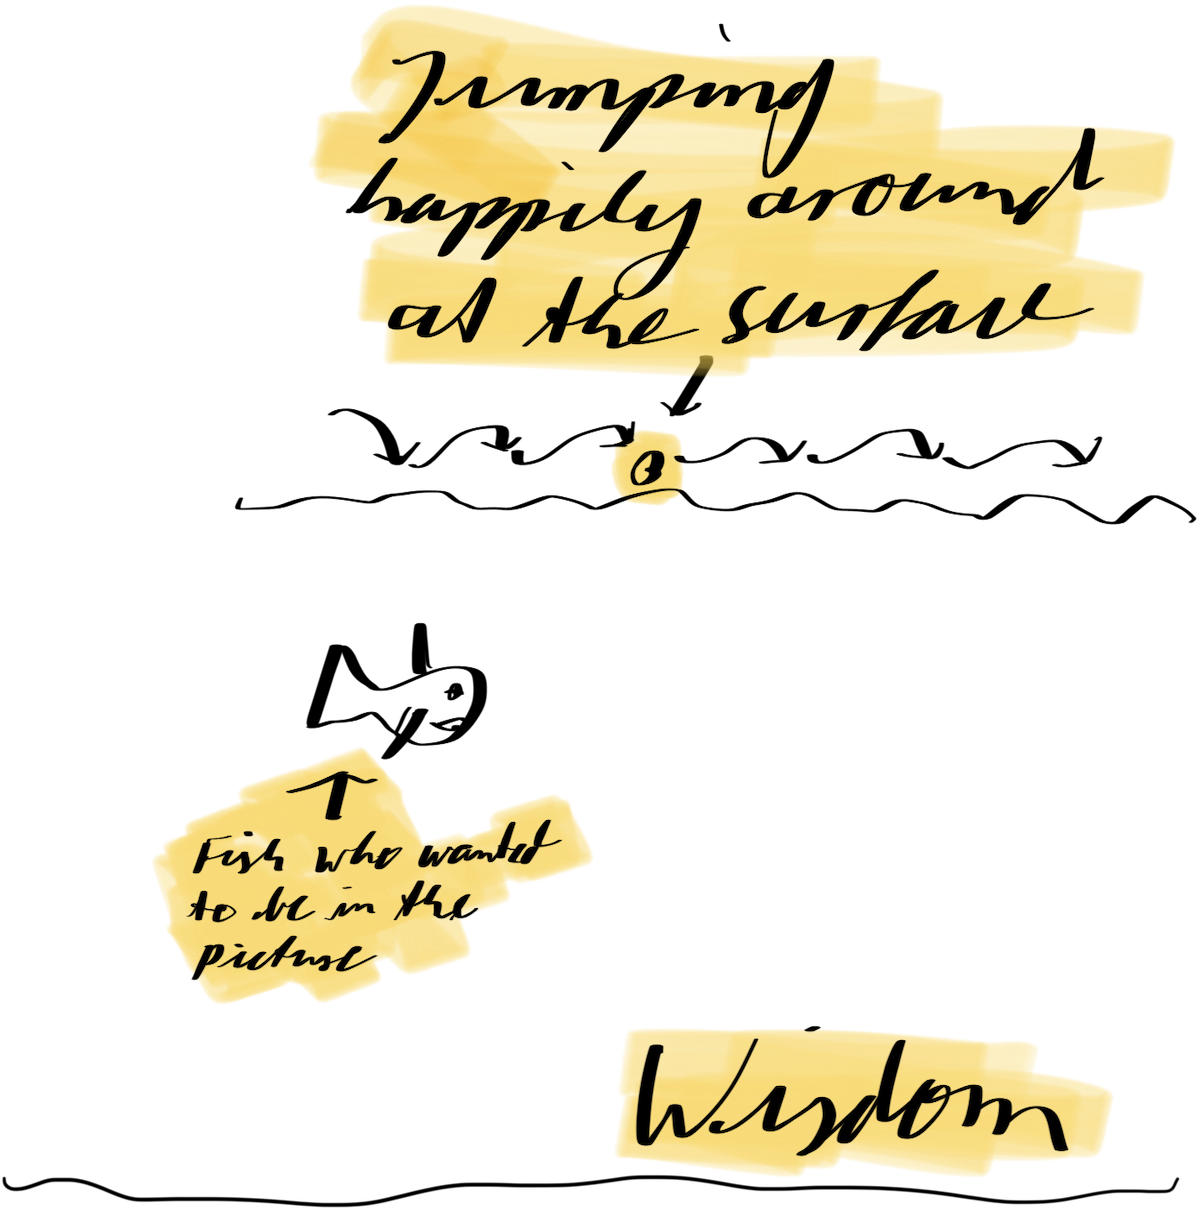 Jumping
happily around
at the surface
Fish who wanted
to be in the
picture
Wisdom